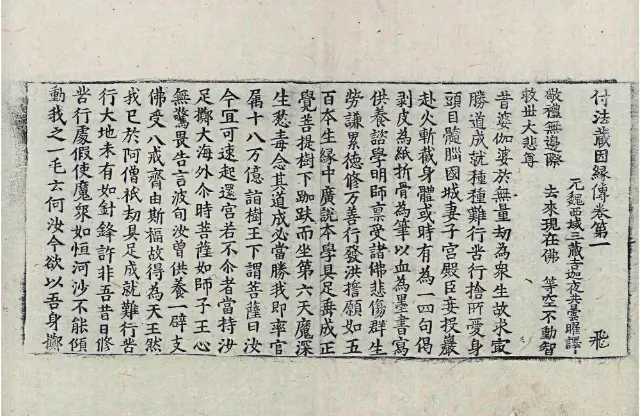 付法藏因縁傳卷第一 飛
元魏西域三藏吉迦夜共曇曜譯
敬禮無邊際 去來現在佛 等空不動智
救世大悲尊
昔婆伽婆於無量劫為衆生故求㝡
勝道成就種種難行苦行捨所愛身
頭目髓腦國城妻子宮殿臣妾投巖
赴火斬截身體或時有為一四句偈
剥皮為紙折骨為筆以血為墨書寫
供養諮學明師禀受諸佛悲傷群生
勞謙累德修万善行發洪擔願如五
百本生緣中廣說本學具足垂成正
覺菩提樹下跏趺而坐第六天魔深
生愁毒念其道成必當勝我即率官
属十八万億詣樹王下謂菩薩曰汝
今冝可速起還宮若不介者當持汝
足擲大海外介時菩薩如師子王心
無驚畏告言波旬汝曾供養一辟支
佛受八戒齋由斯福故得為天王然
我已於阿僧祇劫具足成就難行苦
行大地未有如針鋒許非吾昔日修
苦行處假使魔衆如恒河沙不能傾
動我之一毛云何汝今欲以吾身擲